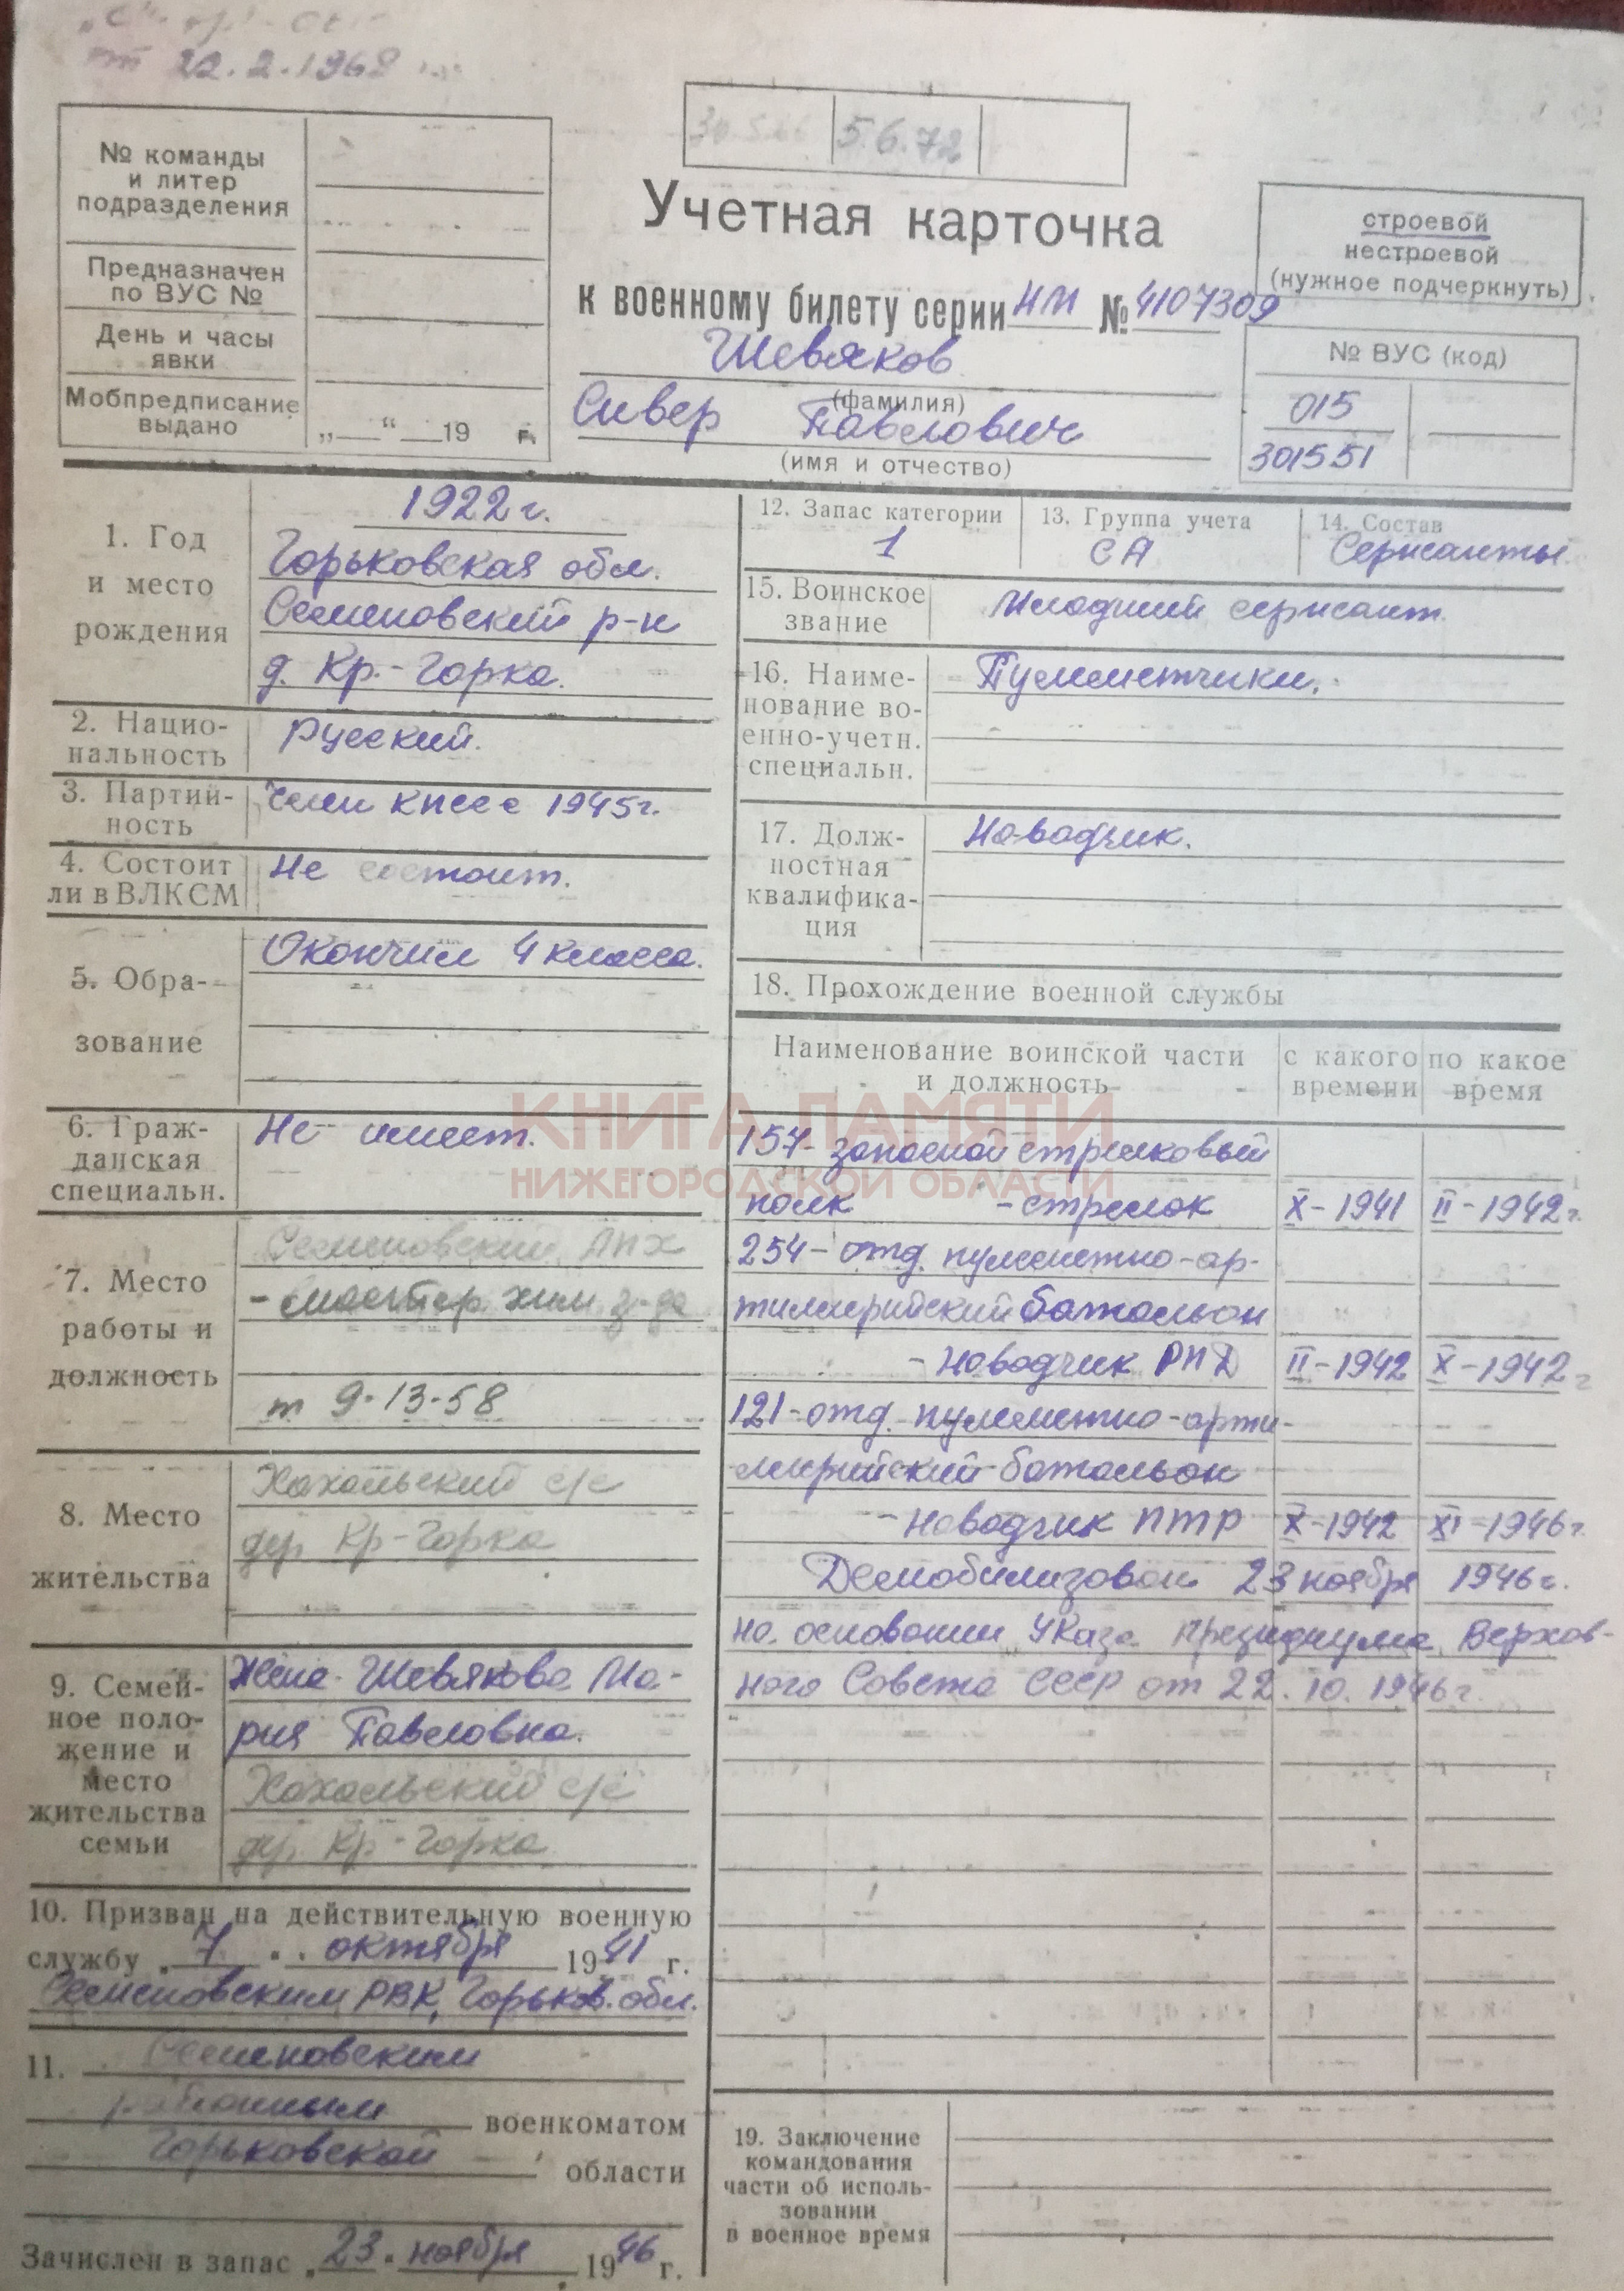 от 22.2.1968
№ команды
и литер
подразделения
Предназначен
по ВУС №
День и часы
явки
Мобпредписание
выдано
„ “ 19 г.
30.5.66 5.6.72
Учетная карточка
к военному билету серии НМ № 4107309
Шевяков
(фамилия)
Сивер Павлович
(имя и отчество)
строевой
нестроевой
(нужное подчеркнуть)
№ ВУС (код)
015
301551
1. Год
и место
рождения
1922 г.
Горьковская обл.
Семеновский р-н
д. Кр.-Горка.
2. Нацио-
нальность
Русский.
3. Партий-
ность
Член КПСС с 1945г.
4. Состоит
ли в ВЛКСМ
Не состоит.
5. Обра-
зование
Окончил 4 класса.
6. Граж-
данская
специальн.
Не имеет.
7. Место
работы и
должность
Семеновский ЛПХ
- мастер хим з-да
т 9-13-58
8. Место
жительства
Хахальский с/с
дер. Кр-Горка
9. Семей-
ное поло-
жение и
место
жительства
семьи
Жена-Шевякова Ма-
рия Павловна.
Хахальский с/с
дер. Кр-Горка
10. Призван на действительную военную
службу „7“ октября 1941 г.
Семеновским РВК, Горьков. обл.
11. Семеновским
районным военкоматом
Горьковской области
Зачислен в запас „23“ ноября 1946 г.
12. Запас категории
1
13. Группа учета
СА
14. Состав
Сержанты
15. Воинское
звание
Младший сержант
16. Наиме-
нование во-
енно-учетн.
специальн.
Пулеметчики.
17. Долж-
ностная
квалифика-
ция
Наводчик.
18. Прохождение военной службы
Наименование воинской части
и должность
с какого
времени
по какое
время
157-запасной стрелковый
полк - стрелок X-1941 II-1942г.
254-отд. пулеметно-ар-
тиллерийский батальон
- наводчик РПД II-1942 X-1942г
121-отд. пулеметно-арти-
лерийский батальон
- наводчик ПТР X-1942 XI-1946г
Демобилизован 23 ноября 1946г.
на основании Указа Президиума Верхов-
ного Совета СССР от 22.10.1946г.
19. Заключение
командования
части об исполь-
зовании
в военное время
КНИГА ПАМЯТИ
НИЖЕГОРОДСКОЙ ОБЛАСТИ